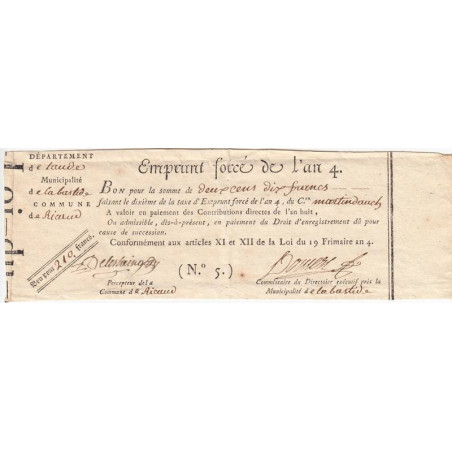 DÉPARTEMENT
de l'aude
Municipalité
de labastide
COMMUNE
de Ricaud
Bon pour 210, francs.
Emprunt forcé de l'an 4.
BON pour la somme de deux cens dix francs
faisant le dixième de la taxe d'Emprunt forcé de l'an 4, du C.en martin dauch
A valoir en paiement des Contributions directes de l'an huit,
Ou admissible, dès-à-présent, en paiement du Droit d'enregistrement dû pour
cause de succession.
Conformément aux articles XI et XII de la Loi du 19 Frimaire an 4.
(N.º 5.)
Percepteur de la
Commune de Ricaud
Commissaire du Directoire exécutif près la
Municipalité de labastide